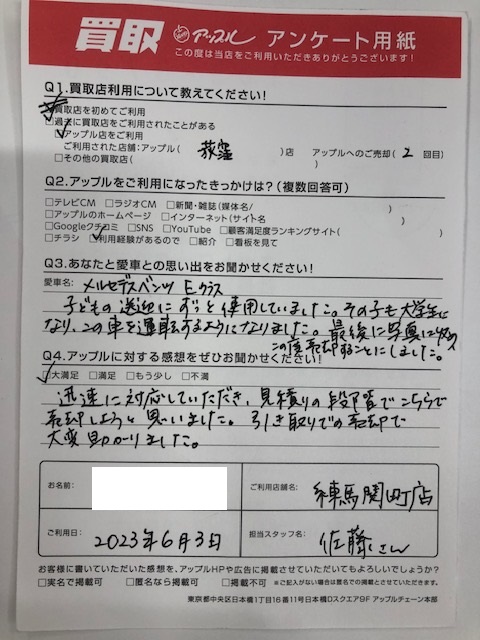 買取 アップル アンケート用紙
この度は当店をご利用いただきありがとうございます！
Q1.買取店利用について教えてください！
買取店を初めてご利用
過去に買取店をご利用されたことがある
□アップル店をご利用
ご利用された店舗:アップル( 荻窪 )店 アップルへのご売却( 2 回目)
□その他の買取店( )
Q2.アップルをご利用になったきっかけは？(複数回答可)
□テレビCM □ラジオCM □新聞・雑誌(媒体名/ )
□アップルのホームページ □インターネット(サイト名 )
□Googleクチコミ □SNS □YouTube □顧客満足度ランキングサイト( )
□チラシ □利用経験があるので □紹介 □看板を見て
Q3.あなたと愛車との思い出をお聞かせください！
愛車名: メルセデスベンツ Eクラス
子どもの送迎にずっと使用していました。その子も大学生に
なり、この車を運転するようになりました。最後に写真に収め
この度売却することにしました。
Q4.アップルに対する感想をぜひお聞かせください！
□大満足 □満足 □もう少し □不満
迅速に対応していただき、見積りの段階でこちらで
売却しようと思いました。引き取りでの売却で
大変助かりました。
お名前:
ご利用店舗名: 練馬関町店
ご利用日: 2023年6月3日
担当スタッフ名: 佐藤さん
お客様に書いていただいた感想を、アップルHPや広告に掲載させていただいてもよろしいでしょうか？
□実名で掲載可 □匿名なら掲載可 □掲載不可 ※ご記入がない場合は匿名での掲載とさせていただきます。
東京都中央区日本橋1丁目16番11号日本橋Dスクエア9F アップルチェーン本部